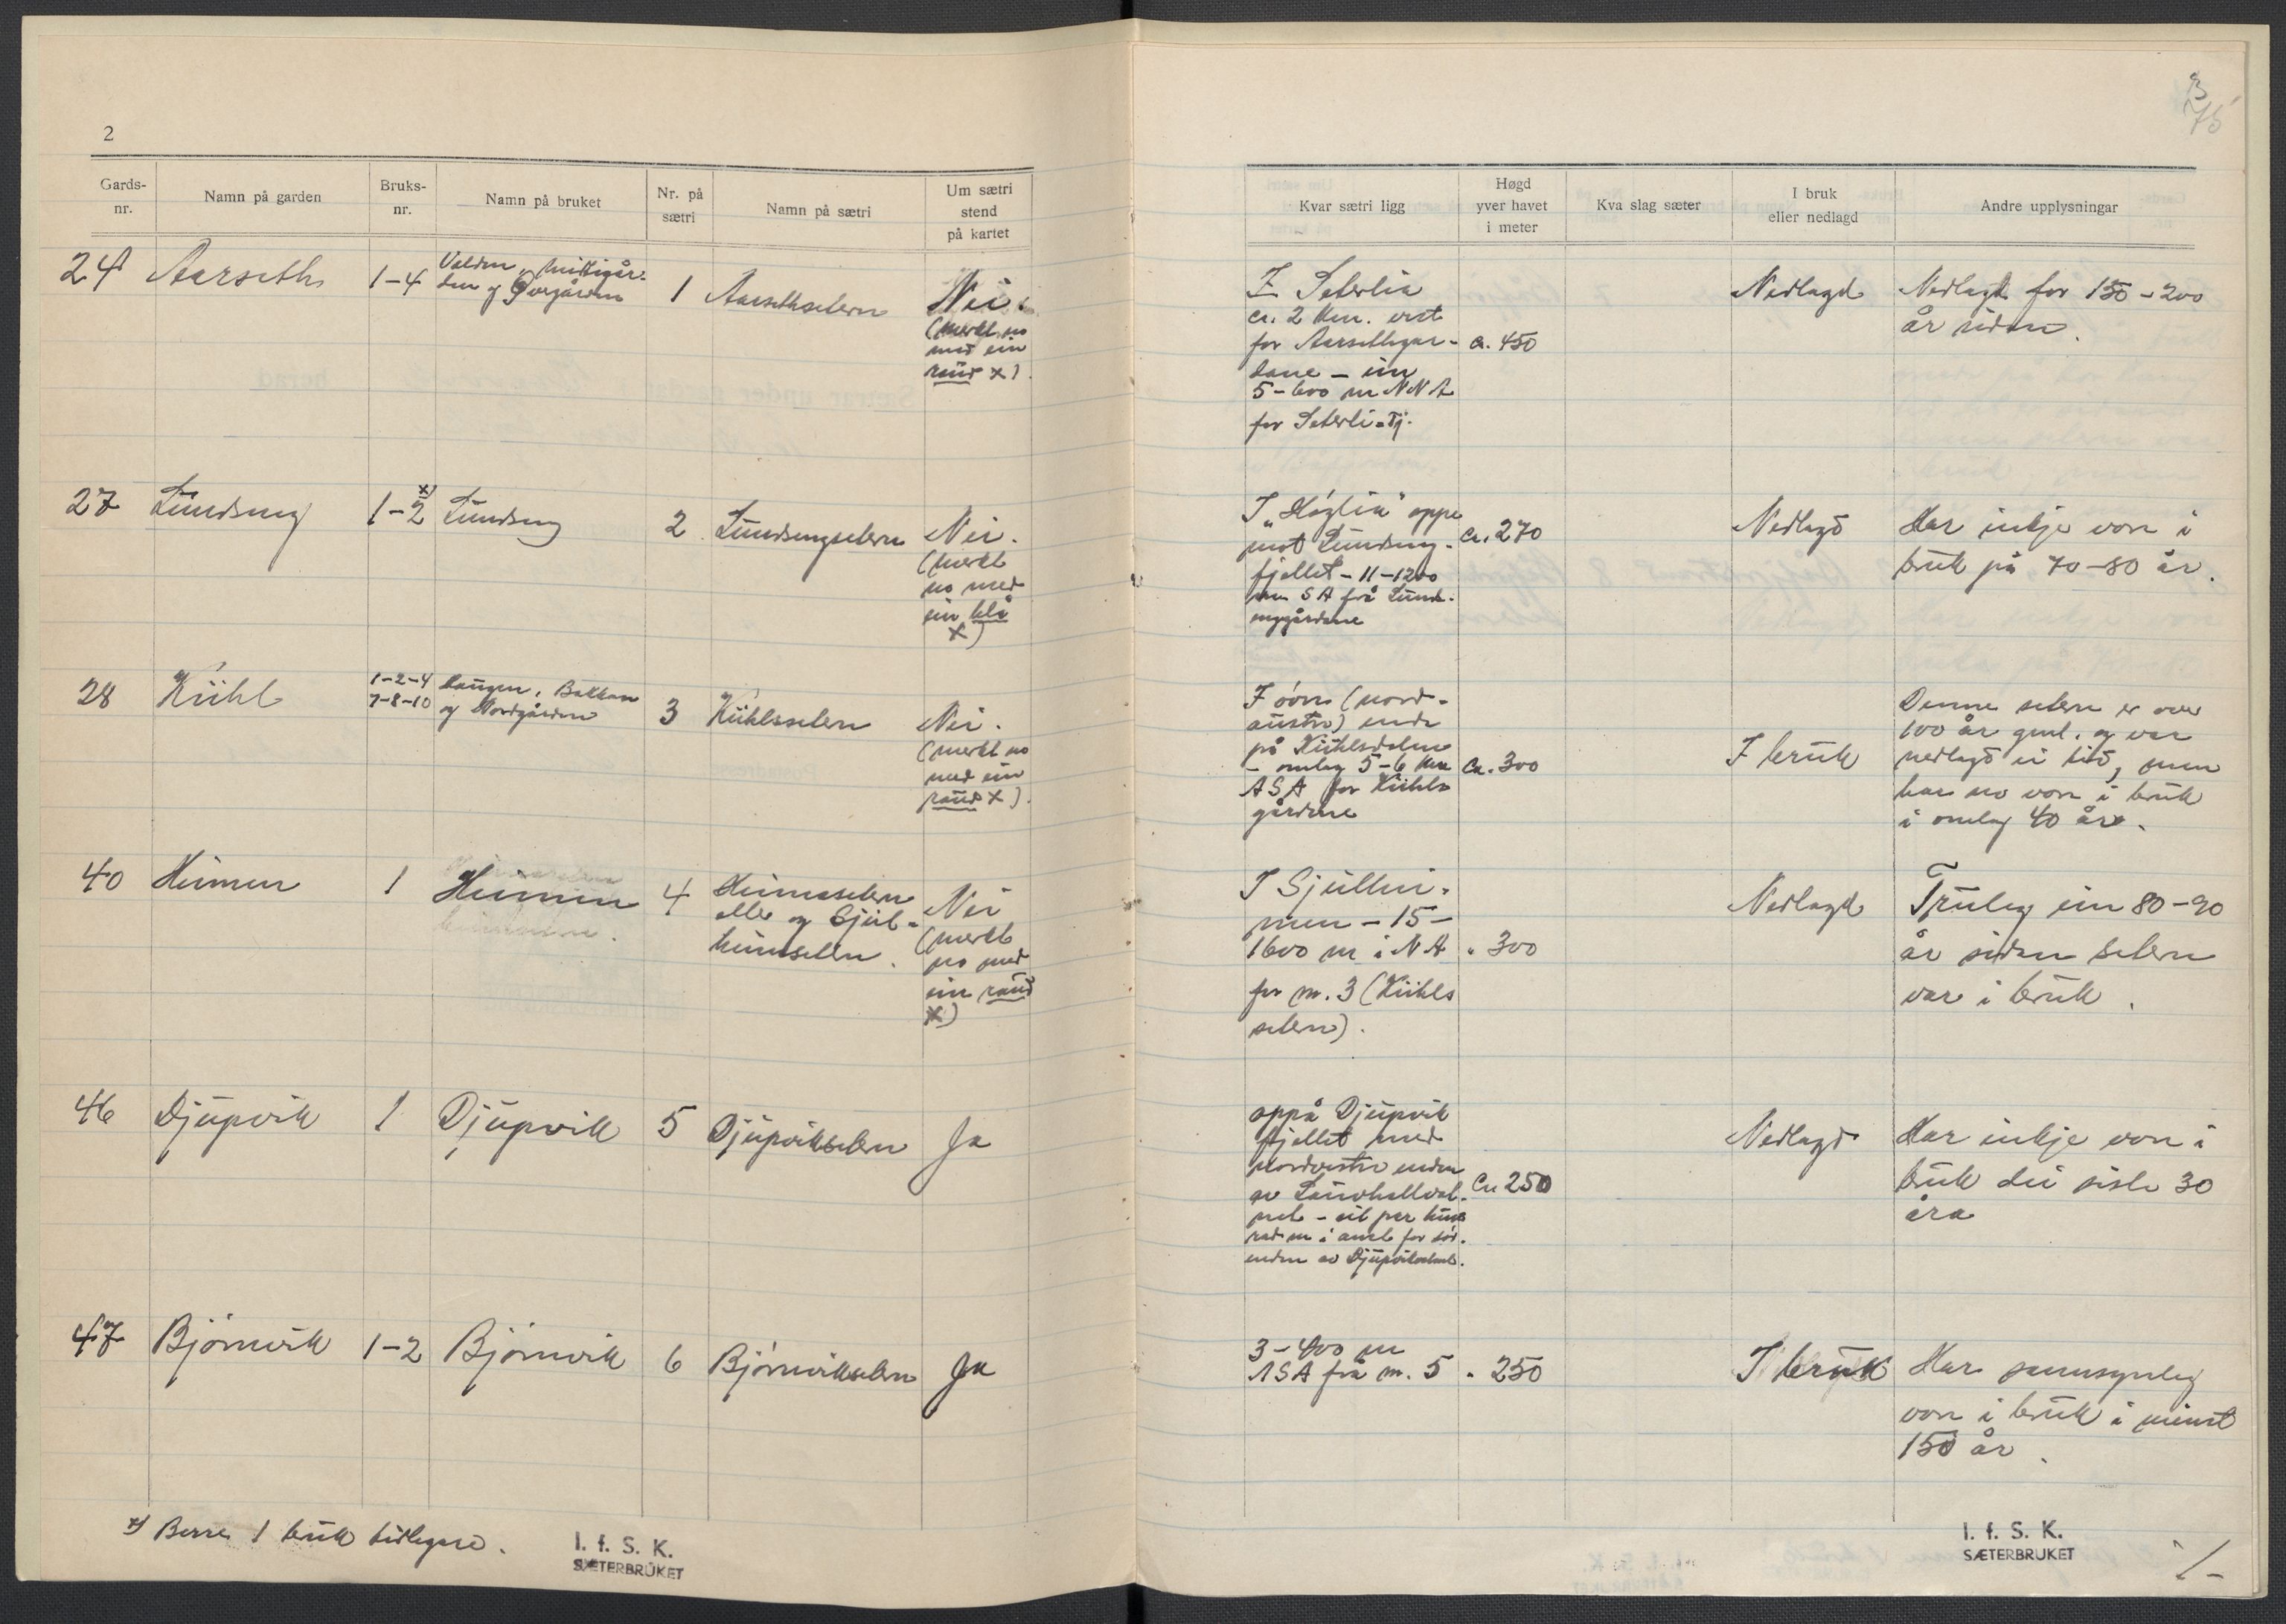 2
Gards-
nr.
Namn på garden
Bruks-
nr.
Namn på bruket
Nr. på
sætri
Namn på sætri
Um sætri
stend
på kartet
24
Aarseth
1-4
1
Aarsethsetern
Nei.
(merkt no
med ein
raud x).
27
Lundseng
1-2 x)
Lundseng
2
Lundsengsetern
Nei.
(merkt
no med
ein blå
x)
28
Kühl
1-2-4
7-8-10
Haugen, Bakken
og Nordgården
3
Kühlssetern
Nei.
(merkt no
med ein
raud x).
40
Heimen
1
Heimen
4
Heimasetern
eller og Sjul-
heimsetern.
Nei
(merkt
no med
ein raud
x)
46
Djupvik
1
Djupvik
5
Djupviksetern
Ja
47
Bjørnvik
1-2
Bjørnvik
6
Bjørnviksetern
Ja
x) Berre 1 bruk tidlegare.
I. f. S. K.
SÆTERBRUKET
3
75
Kvar sætri ligg
Høgd
yver havet
i meter
Kva slag sæter
I bruk
eller nedlagd
Andre upplysningar
I Seterlia
ca. 2 km. vest
for Aarsethgar-
dane - ein
5-600 m NNA
for Seterli-Tj.
ca. 450
Nedlagd
Nedlagt for 150-200
år sidan.
I "Høglia" oppe
mot Lundseng-
fjellet - 11-1200
m SA frå Lunds-
enggårdane
ca. 270
Nedlagd
Har inkje vore i
bruk på 70-80 år.
I øvre (nord-
austre) ende
på Kühlsdalen
- omlag 5-6 km
ASA for Kühls
gårdane
Ca. 300
I bruk
Denne setern er over
100 år gml. og var
nedlagd ei tid, men
har no vore i bruk
i omlag 40 år.
I Sjulhei-
men - 15-
1600 m i NA
for nr. 3 (Kühls
setern).
" 300
Nedlagd
Truleg ein 80-90
år sidan setern
var i bruk.
oppå Djupvik
fjellet med
Nordvestre enden
av
- eit par hund
rad m i aust for sør-
enden av
Ca 250
Nedlagd
Har inkje vore i
bruk dei siste 30
åra
3-400 m
ASA frå nr. 5
" 250
I bruk
Har sannsynleg
vore i bruk i minst
150 år.
I. f. S. K.
SÆTERBRUKET
1-